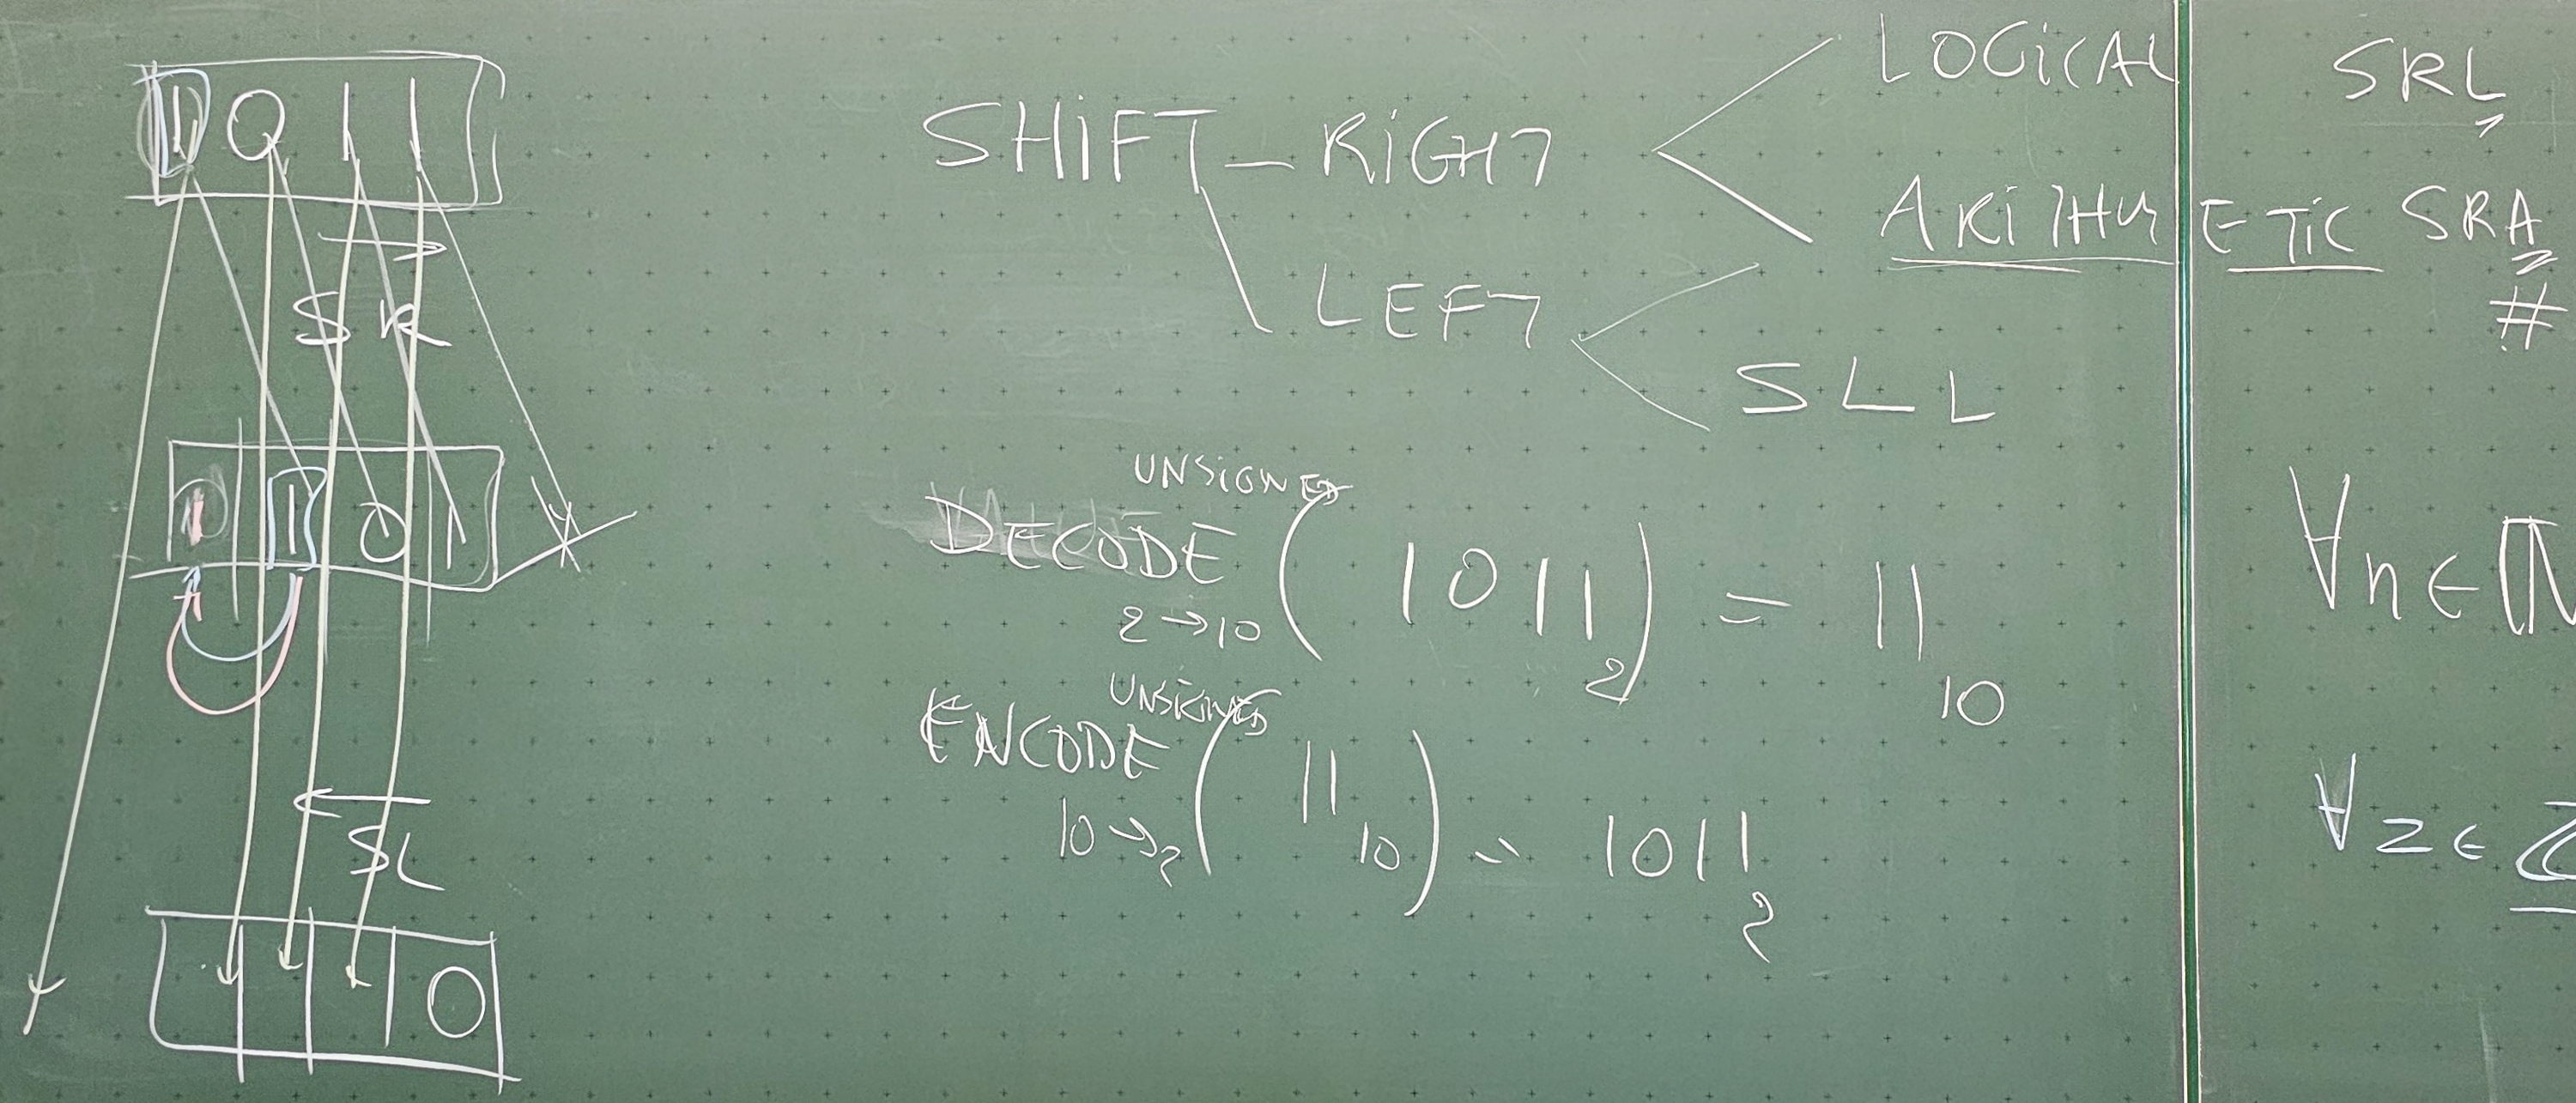 1 0 1 1
SR
1 1 0 1
SL
0
SHIFT - RIGHT
LOGICAL SRL
ARITHMETIC SRA
#
LEFT
SLL
UNSIGNED
DECODE ( 1011₂ ) = 11₁₀
2 → 10
UNSIGNED
ENCODE ( 11₁₀ ) = 1011₂
10 → 2
∀n ∈ ℕ
∀z ∈ ℤ